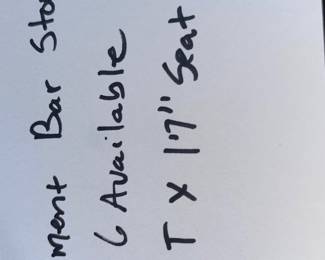 ment Bar Sto
6 Available
T X 17" Seat